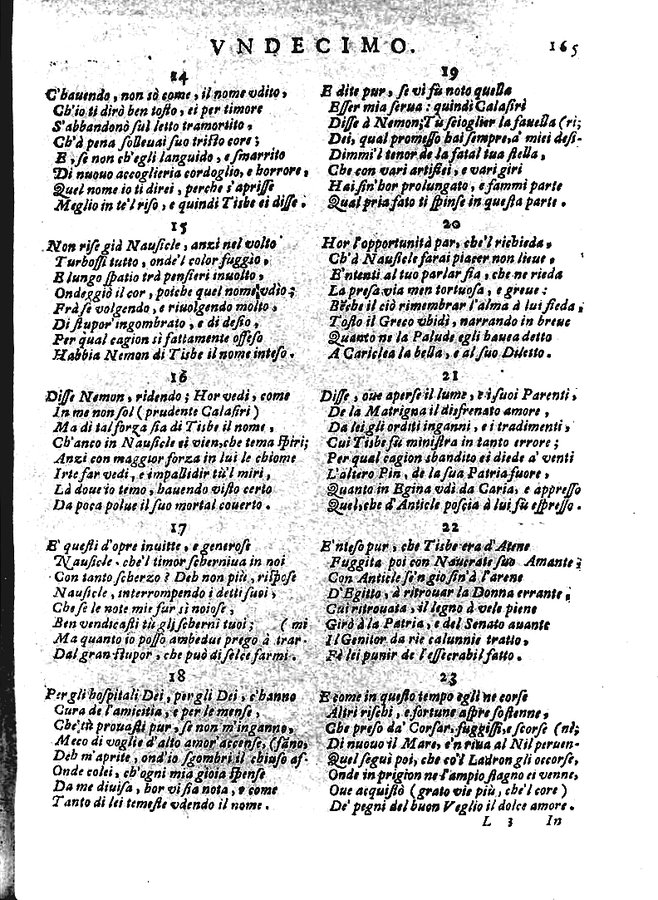 VNDECIMO.
165
14
C'hauendo, non sò come, il nome vdito,
Ch'io ti dirò ben toſto, ei per timore
S'abbandonò ſul letto tramortito,
Ch'à pena ſolleuai ſuo triſto core;
E, ſe non ch'egli languido, e ſmarrito
Di nuouo accoglieria cordoglio, e horrore,
Quel nome io ti direi, perche s'apriſſe
Meglio in te'l riſo, e quindi Tisbe ei diſſe.
15
Non riſe già Nauſicle, anzi nel volto
Turboſſi tutto, onde'l color fuggio,
E lungo ſpatio trà penſieri inuolto,
Ondeggiò il cor, poiche quel nome vdio;
Frà ſe volgendo, e riuolgendo molto,
Di ſtupor'ingombrato, e di deſio,
Per qual cagion sì fattamente offeſo
Habbia Nemon di Tisbe il nome inteſo.
16
Diſſe Nemon, ridendo; Hor vedi, come
In me non ſol (prudente Calaſiri)
Ma di tal forza ſia di Tisbe il nome,
Ch'anco in Nauſicle ei vien, che tema ſpiri;
Anzi con maggior forza in lui le chiome
Irte far vedi, e impallidir tù'l miri,
Là doue io temo, hauendo viſto certo
Da poca polue il ſuo mortal couerto.
17
E' queſti d'opre inuitte, e generoſe
Nauſicle. che'l timor ſcherniua in noi
Con tanto ſcherzo? Deh non più, riſpoſe
Nauſicle, interrompendo i detti ſuoi,
Che ſe le note mie fur sì noioſe,
Ben vendicaſti tù gli ſcherni tuoi; (mi
Ma quanto io poſſo ambedue prego à trar-
Dal gran ſtupor, che può di ſelce farmi.
18
Per gli hoſpitali Dei, per gli Dei, c'hanno
Cura de l'amicitia, e per le menſe,
Che tù prouaſti pur, ſe non m'inganno,
Meco di voglie d'alto amor'accenſe, (fãno,
Deh m'aprite, ond'io ſgombri il chiuſo af-
Onde colei, ch'ogni mia gioia ſpenſe
Da me diuiſa, hor vi ſia nota, e come
Tanto di lei temeſte vdendo il nome.
19
E dite pur, ſe vi fù noto quella
Eſſer mia ſerua: quindi Calaſiri
Diſſe à Nemon; Tu ſcioglier la fauella (ri;
Dei, qual promeſſo hai ſempre, a' miei deſi-
Dimmi'l tenor de la fatal tua ſtella,
Che con vari artifici, e vari giri
Hai ſin'hor prolungato, e fammi parte
Qual pria fato ti ſpinſe in queſta parte.
20
Hor l'opportunità par, che'l richieda,
Ch'à Nauſicle farai piacer non lieue,
E'ntenti al tuo parlar ſia, che ne rieda
La preſa via men tortuoſa, e greue:
Bẽche il ciò rimembrar l'alma à lui fieda,
Toſto il Greco vbidì, narrando in breue
Quanto ne la Palude egli hauea detto
A Cariclea la bella, e al ſuo Diletto.
21
Diſſe, oue aperſe il lume, e i ſuoi Parenti,
De la Matrigna il disfrenato amore,
Da lei gli orditi inganni, e i tradimenti,
Cui Tisbe fù miniſtra in tanto errore;
Per qual cagion sbandito ei diede a' venti
L'altero Pin, de la ſua Patria fuore,
Quanto in Egina vdì da Caria, e appreſſo
Quel, che d'Anticle poſcia à lui fù eſpreſſo.
22
E'nteſo pur, che Tisbe era d'Atene
Fuggita poi con Naucrate ſuo Amante;
Con Anticle ſe'n gio ſin'à l'arene
D'Egitto, à ritrouar la Donna errante,
Cui ritrouata, il legno à vele piene
Girò à la Patria, e del Senato auante
Il Genitor da rie calunnie tratto,
Fè lei punir de l'eſſecrabil fatto.
23
E come in queſto tempo egli ne corſe
Altri riſchi, e fortune aſpre ſoſtenne,
Che preſo da' Corſar, fuggiſſi, e ſcorſe (nè;
Di nuouo il Mare, e'n riua al Nil peruen-
Quel ſeguì poi, che co'l Ladron gli occorſe,
Onde in prigion ne l'ampio ſtagno ei venne,
Oue acquiſtò (grato vie più, che'l core)
De' pegni del buon Veglio il dolce amore.
L 3 In